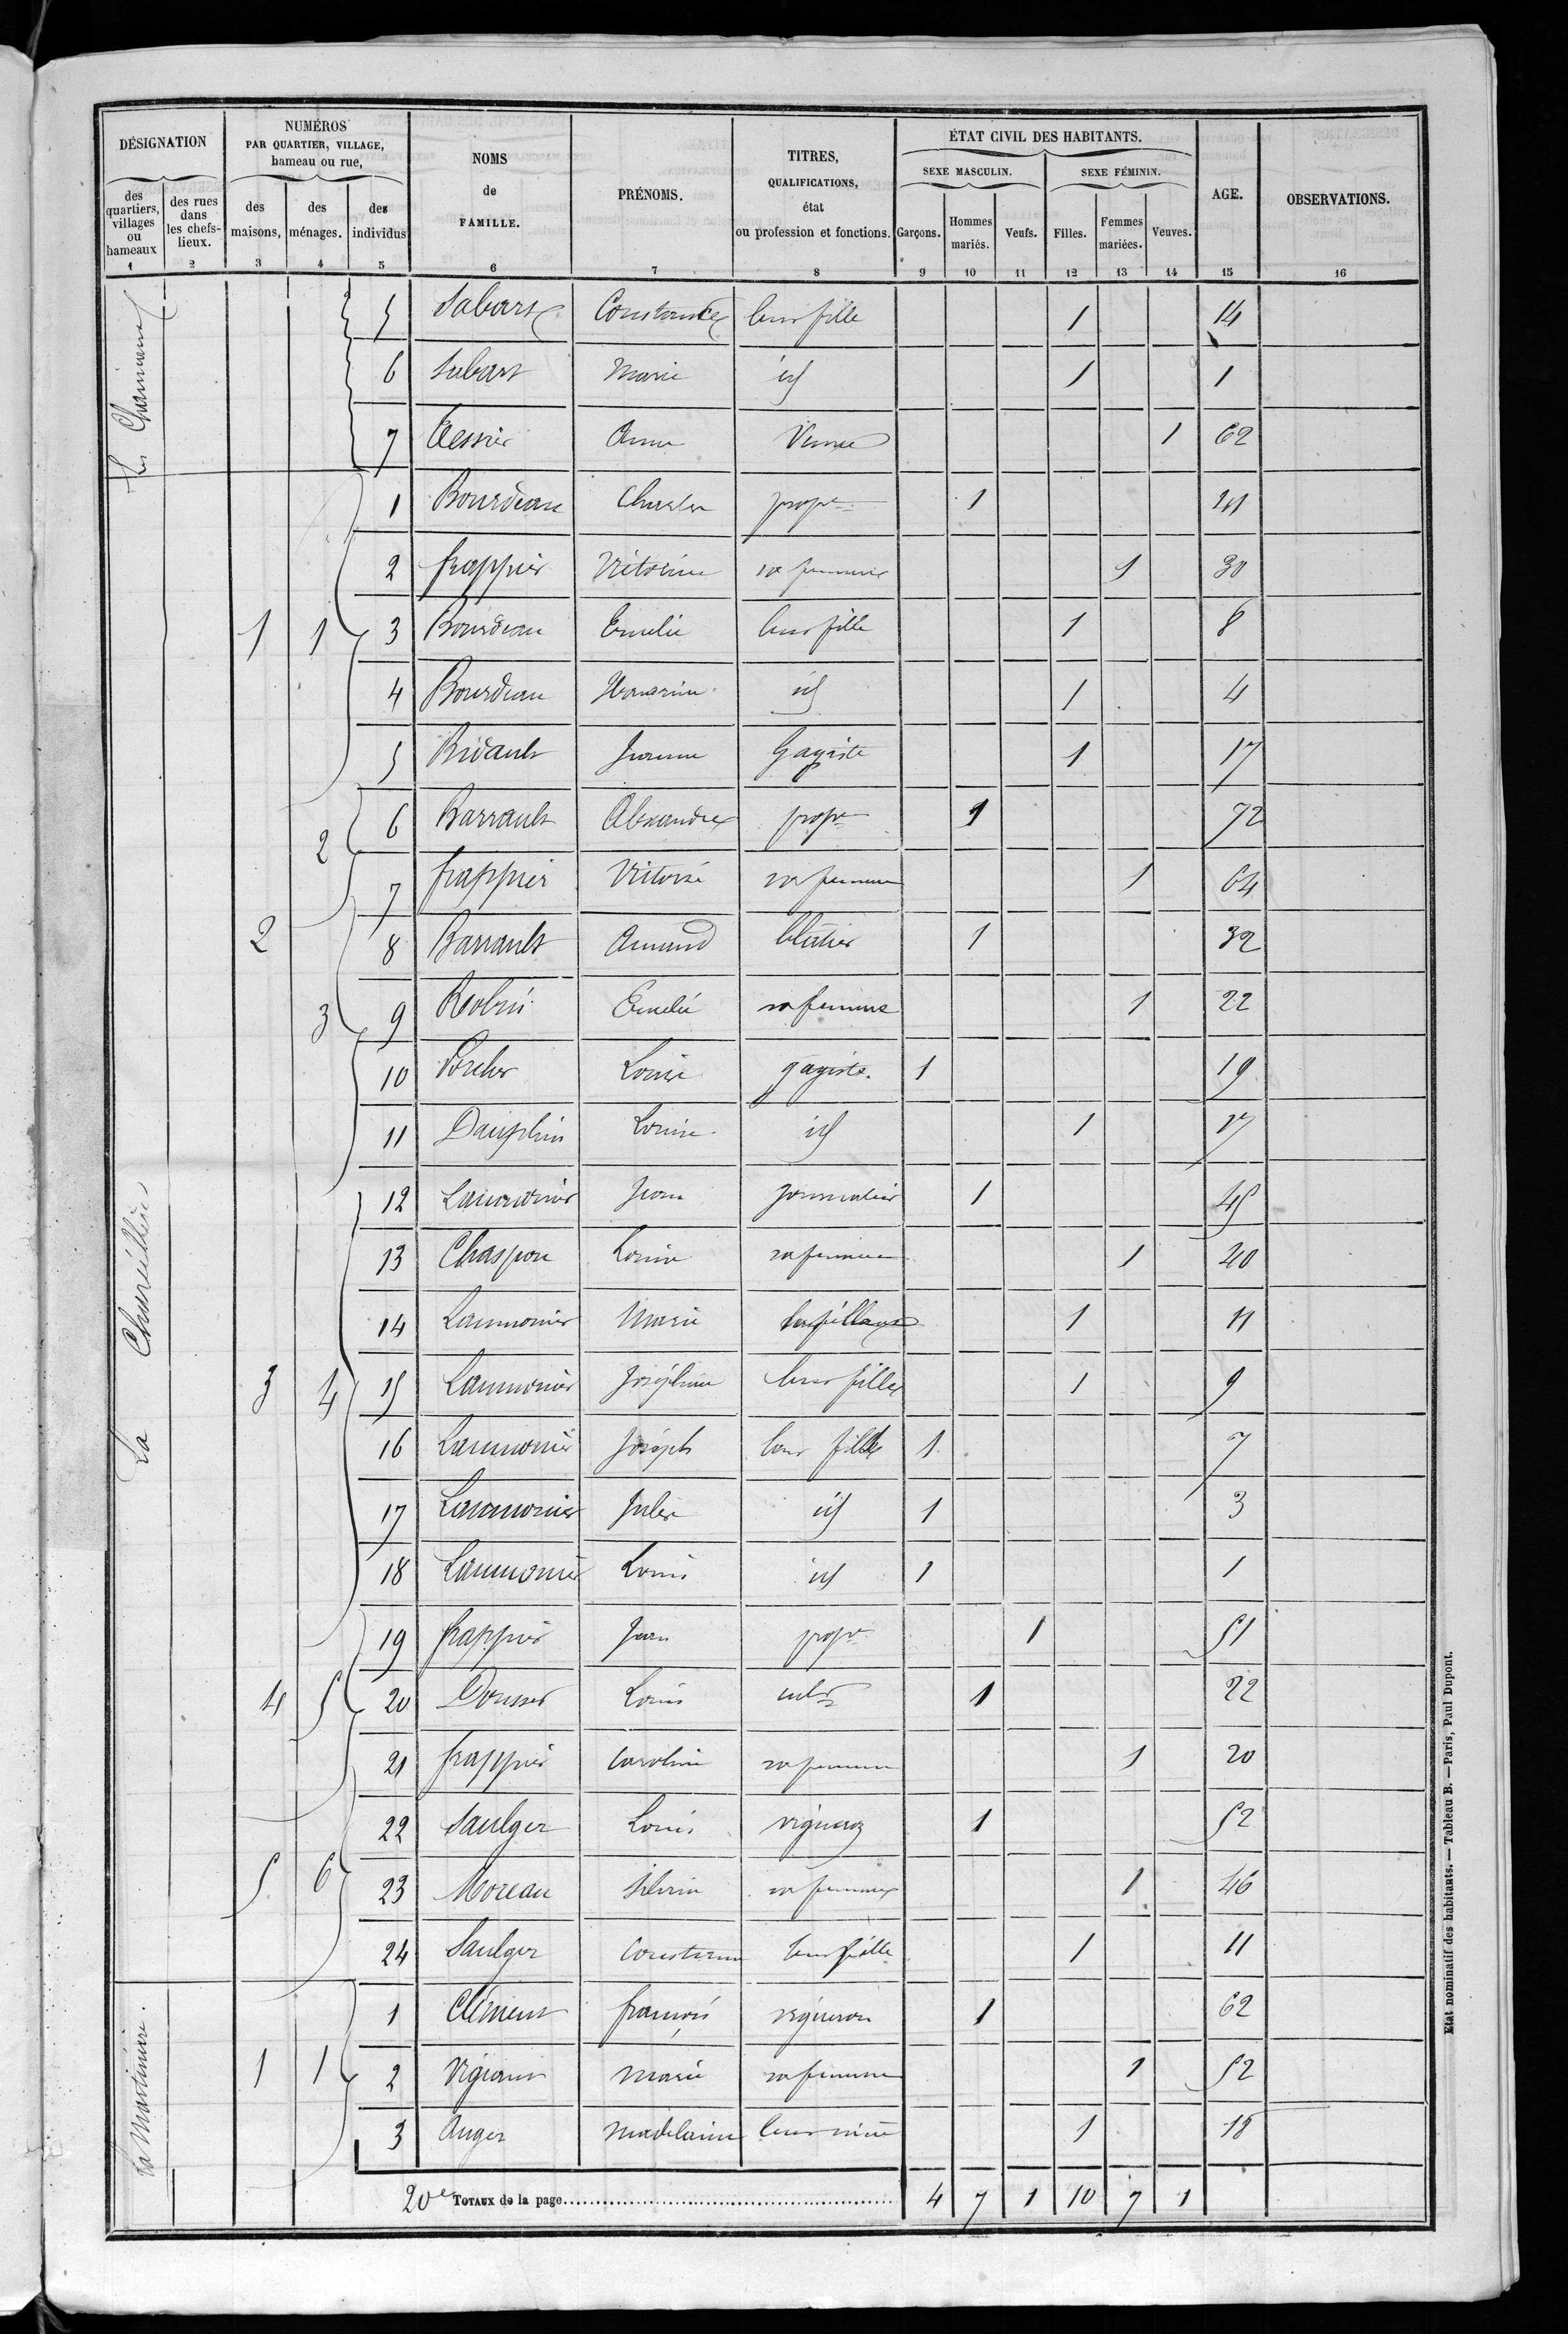 DÉSIGNATION
des quartiers, villages ou hameaux
des rues dans les chefs-lieux.
NUMÉROS PAR QUARTIER, VILLAGE, hameau ou rue,
des maisons,
des ménages.
des individus
NOMS de FAMILLE.
PRÉNOMS.
TITRES, QUALIFICATIONS, état ou profession et fonctions.
ÉTAT CIVIL DES HABITANTS.
SEXE MASCULIN.
SEXE FÉMININ.
Garçons.
Hommes mariés.
Veufs.
Filles.
Femmes mariées.
Veuves.
AGE.
OBSERVATIONS.
1 2 3 4 5 6 7 8 9 10 11 12 13 14 15 16
5 Sabars Constance leur fille 1 14
6 Sabars Marie id 1 1
7 Tessier Anne Veuve 1 62
La
1 Bourdeau Charles propre 1 41
2 frappier Victorine sa femme 1 30
1 1 3 Bourdeau Emelie leur fille 1 8
4 Bourdeau id 1 4
5 Bridault Jeanne Gagiste 1 17
2 6 Barrault Alexandre propre 1 72
7 frappier sa femme 1 64
2 8 Barrault Amand 1 32
3 9 Robin Emelie sa femme 1 22
10 Porcher Louis gagiste 1 19
11 Dauphin Louise id 1 17
12 Laumonier Jean journalier 1 45
13 Chaspon Louise sa femme 1 40
14 Laumonier Marie 1 11
3 4 15 Laumonier Joséphine leur fille 1 9
16 Laumonier Joseph leur fils 1 7
17 Laumonier Jules id 1 3
18 Laumonier Louis id 1 1
19 frappier Jean propre 1 51
4 5 20 Dousset Louis cultr 1 22
21 frappier Caroline sa femme 1 20
22 Saulger Louis vigneron 1 52
5 6 23 Moreau Silvine sa femme 1 46
24 Saulger leur fille 1 11
La Martinière.
1 Clément françois vigneron 1 62
1 1 2 Marie sa femme 1 52
3 Auger Madelaine leur nièce 1 18
20e TOTAUX de la page 4 7 1 10 7 1
Etat nominatif des habitants. — Tableau B. — Paris, Paul Dupont.